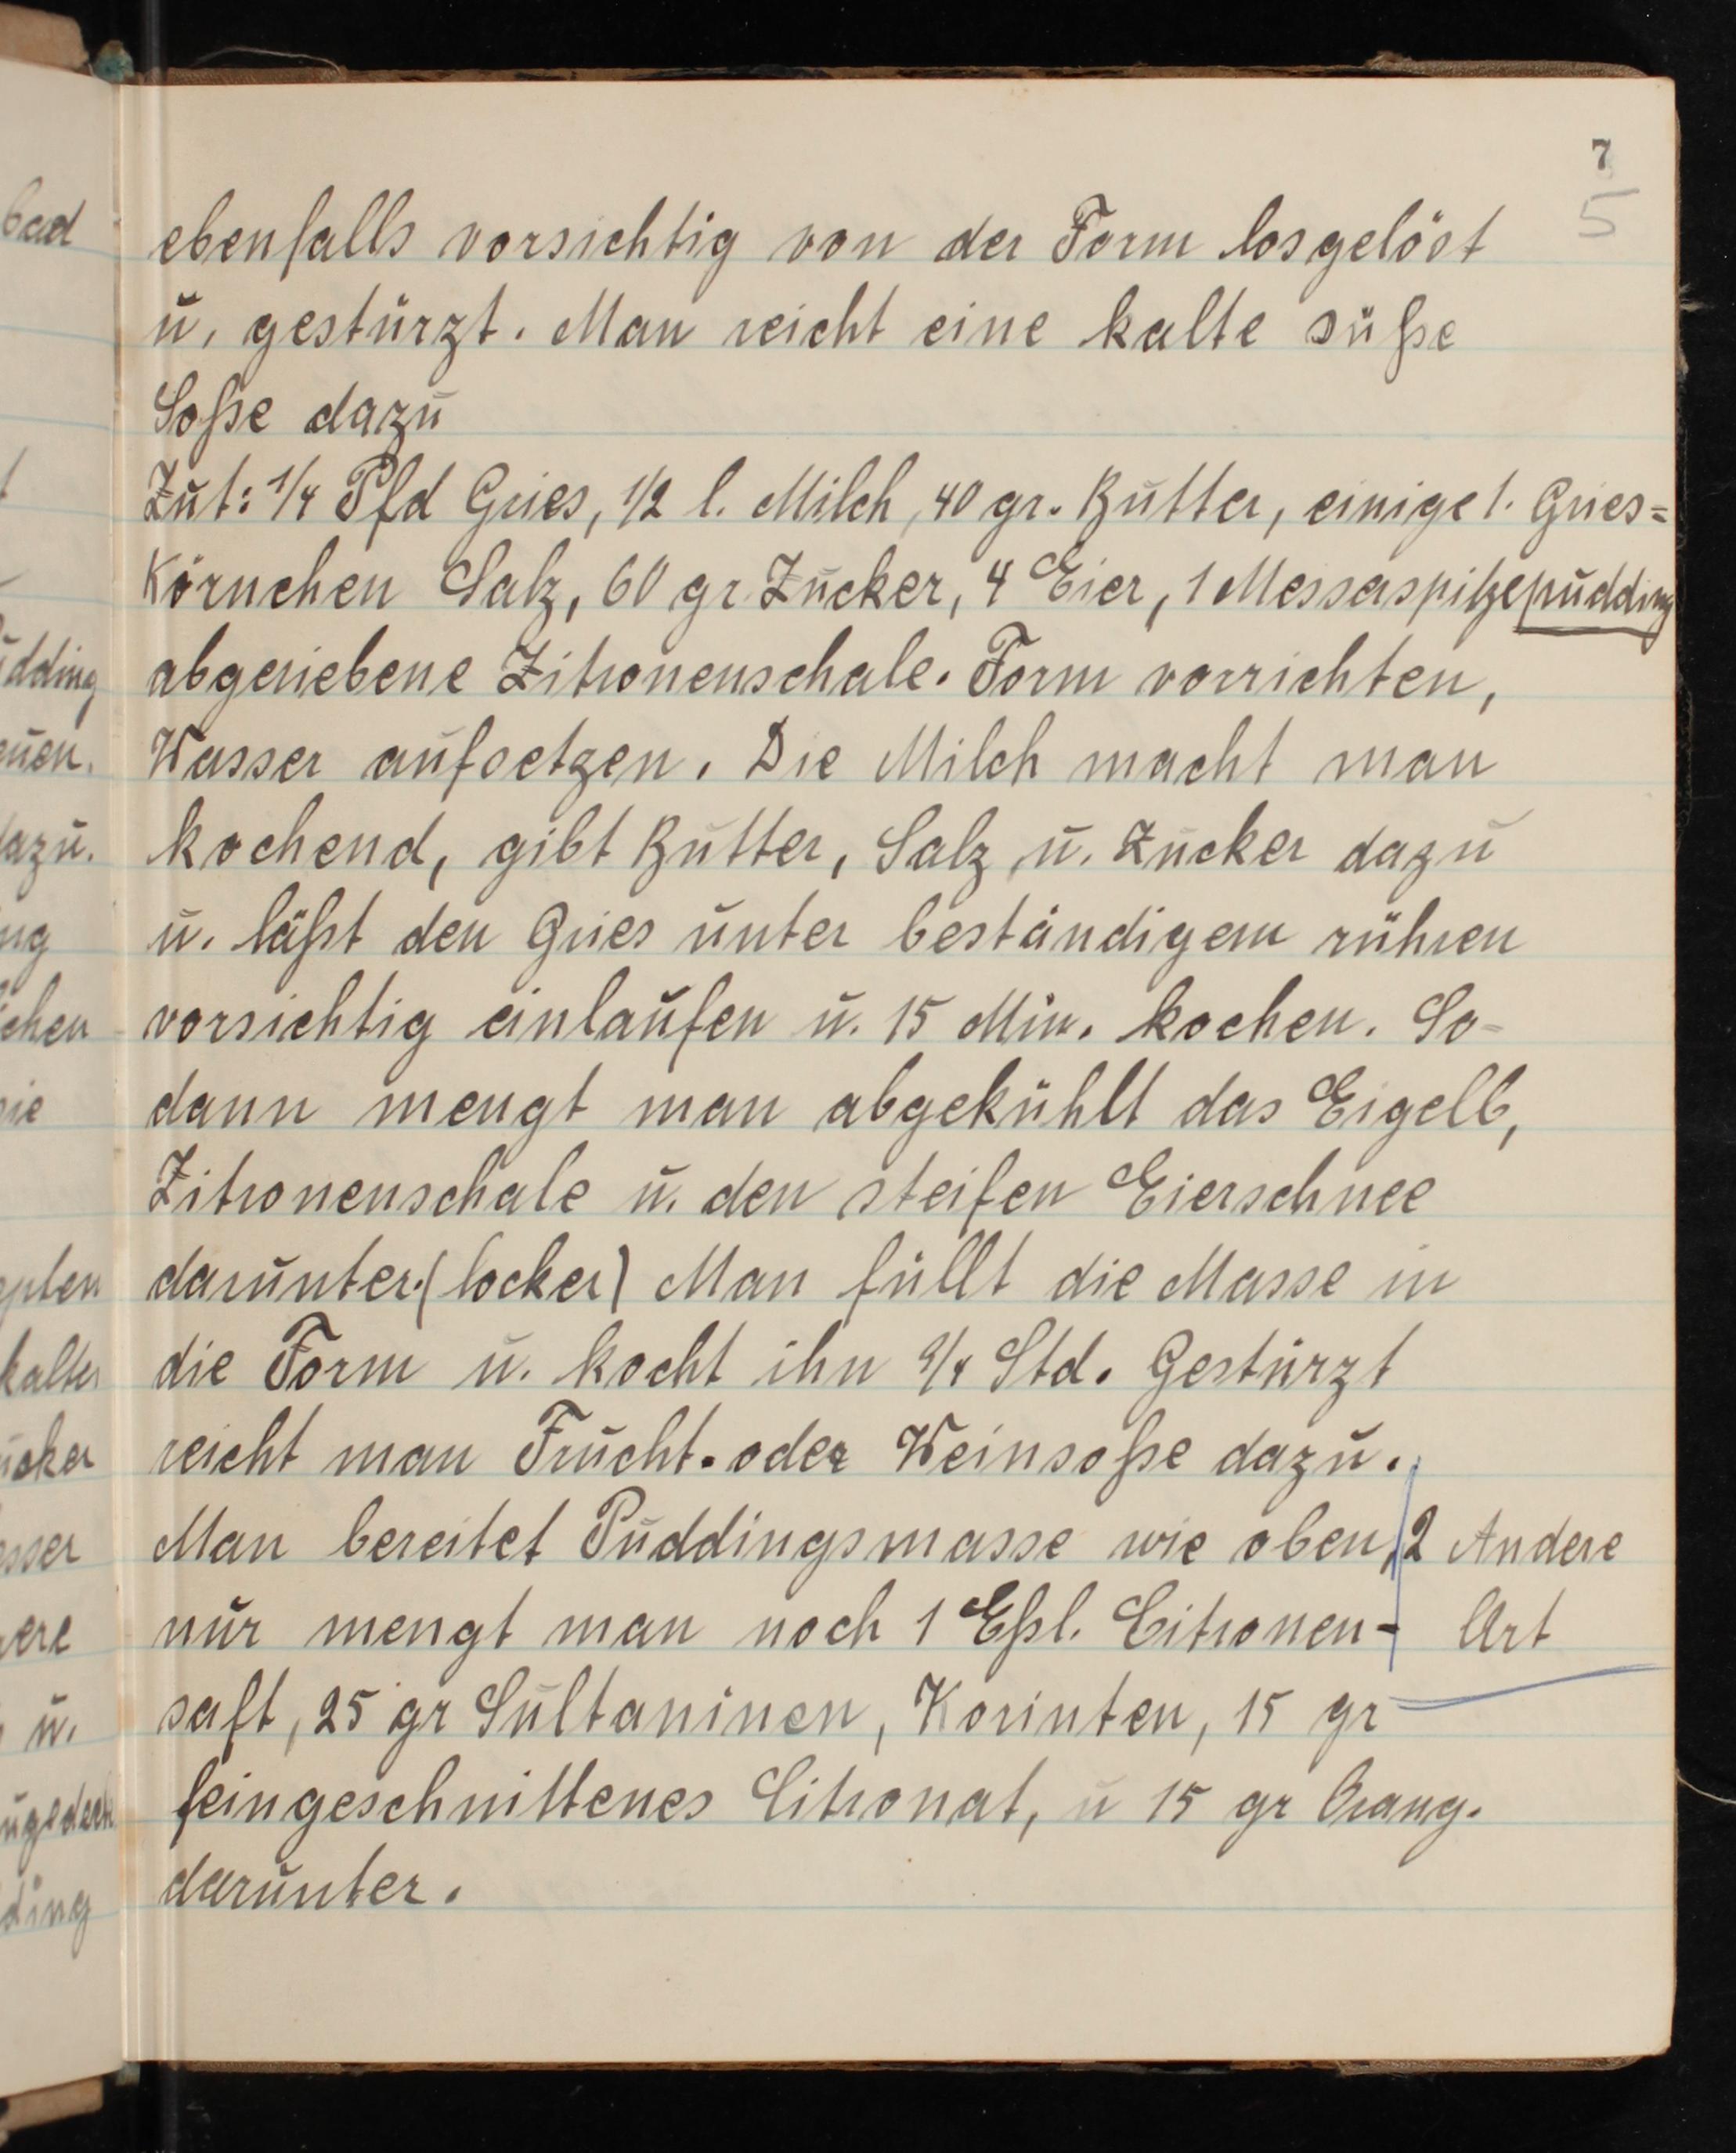 7
5
ebenfalls vorsichtig von der Form losgelöst
u. gestürzt. Man reicht eine kalte süße
Soße dazu
Zut: 1/4 Pfd Gries, 1/2 l. Milch, 40 gr. Butter, einige 1. Gries=
Körnchen Salz, 60 gr. Zucker, 4 Eier, 1 Messerspitze pudding
abgeriebene Zitronenschale. Form vorrichten,
Wasser aufsetzen. Die Milch macht man
kochend, gibt Butter, Salz u. Zucker dazu
u. läßt den Gries unter beständigem rühren
vorsichtig einlaufen u. 15 Min. kochen. So-
dann mengt man abgekühlt das Eigelb,
Zitronenschale u. den steifen Eierschnee
darunter. (locker) Man füllt die Masse in
die Form u. kocht ihn /4 Std. Gestürzt
reicht man Frucht- oder Weinsoße dazu.
Man bereitet Puddingsmasse wie oben, 2 Andere
nur mengt man noch 1 Eßl. Citronen- Art
saft, 25 gr Sultaninen, Korinten, 15 gr
feingeschnittenes Citronat, u 15 gr Orang.
darunter.